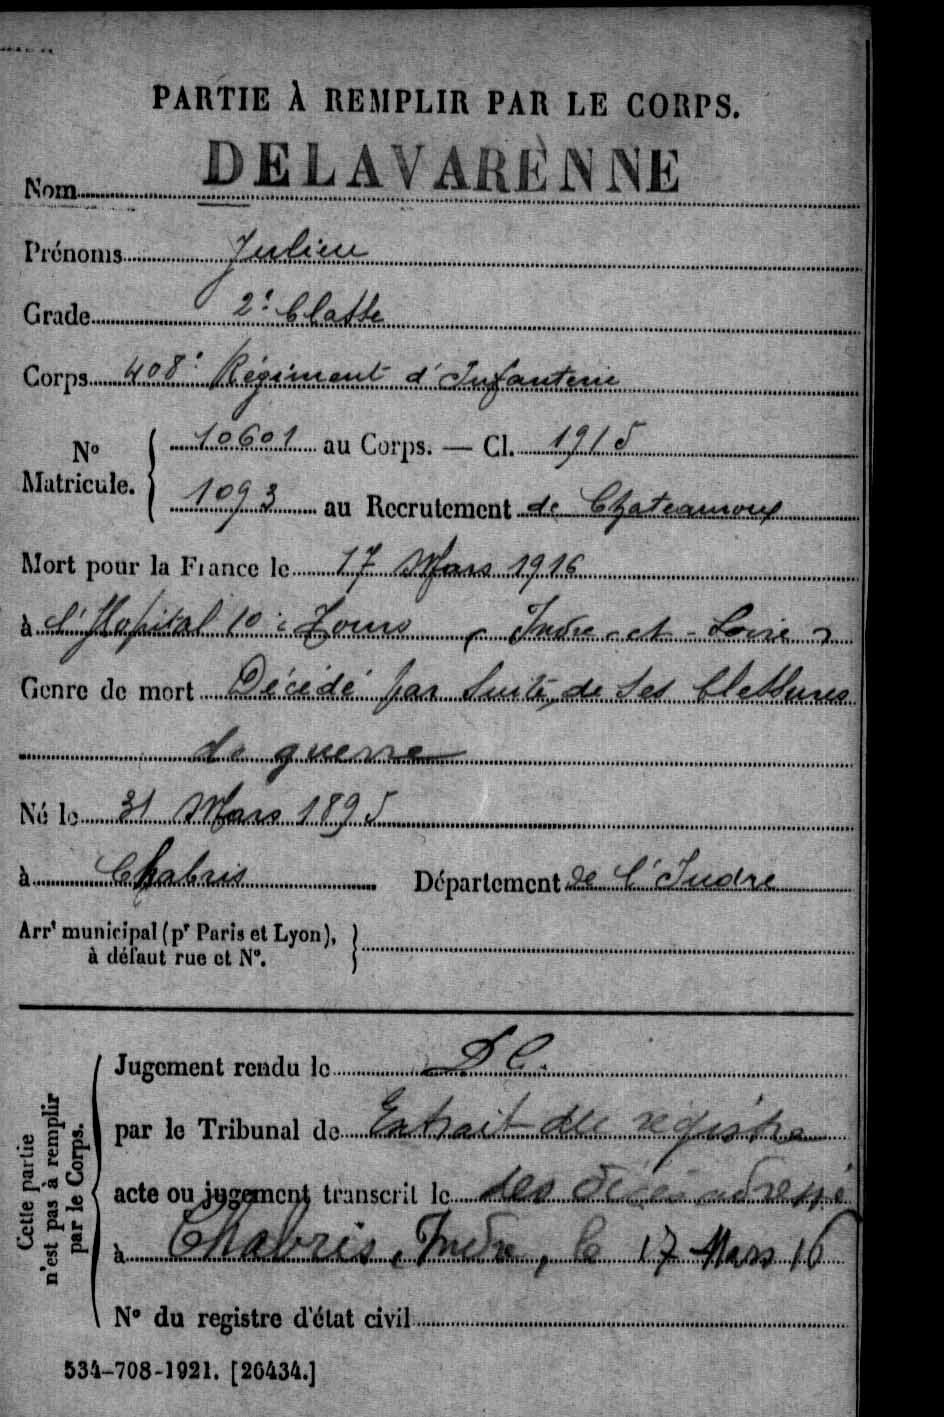 PARTIE À REMPLIR PAR LE CORPS.
Nom DELAVARÈNNE
Prénoms Julien
Grade 2e Classe
Corps 408e Régiment d'Infanterie
No Matricule. 10601 au Corps. — Cl. 1915
1093 au Recrutement de Chateauroux
Mort pour la France le 17 Mars 1916
à l'Hopital 10 Tours (Indre-et-Loire)
Genre de mort Décédé par suite de ses blessures
de guerre
Né le 31 Mars 1895
à Chabris Département de l'Indre
Arrt municipal (pr Paris et Lyon),
à défaut rue et No.
Cette partie n'est pas à remplir par le Corps.
Jugement rendu le D C.
par le Tribunal de Extrait du registre
acte ou jugement transcrit le des décès adressé
à Chabris, Indre, le 17 Mars 16
No du registre d'état civil
534-708-1921. [26434.]